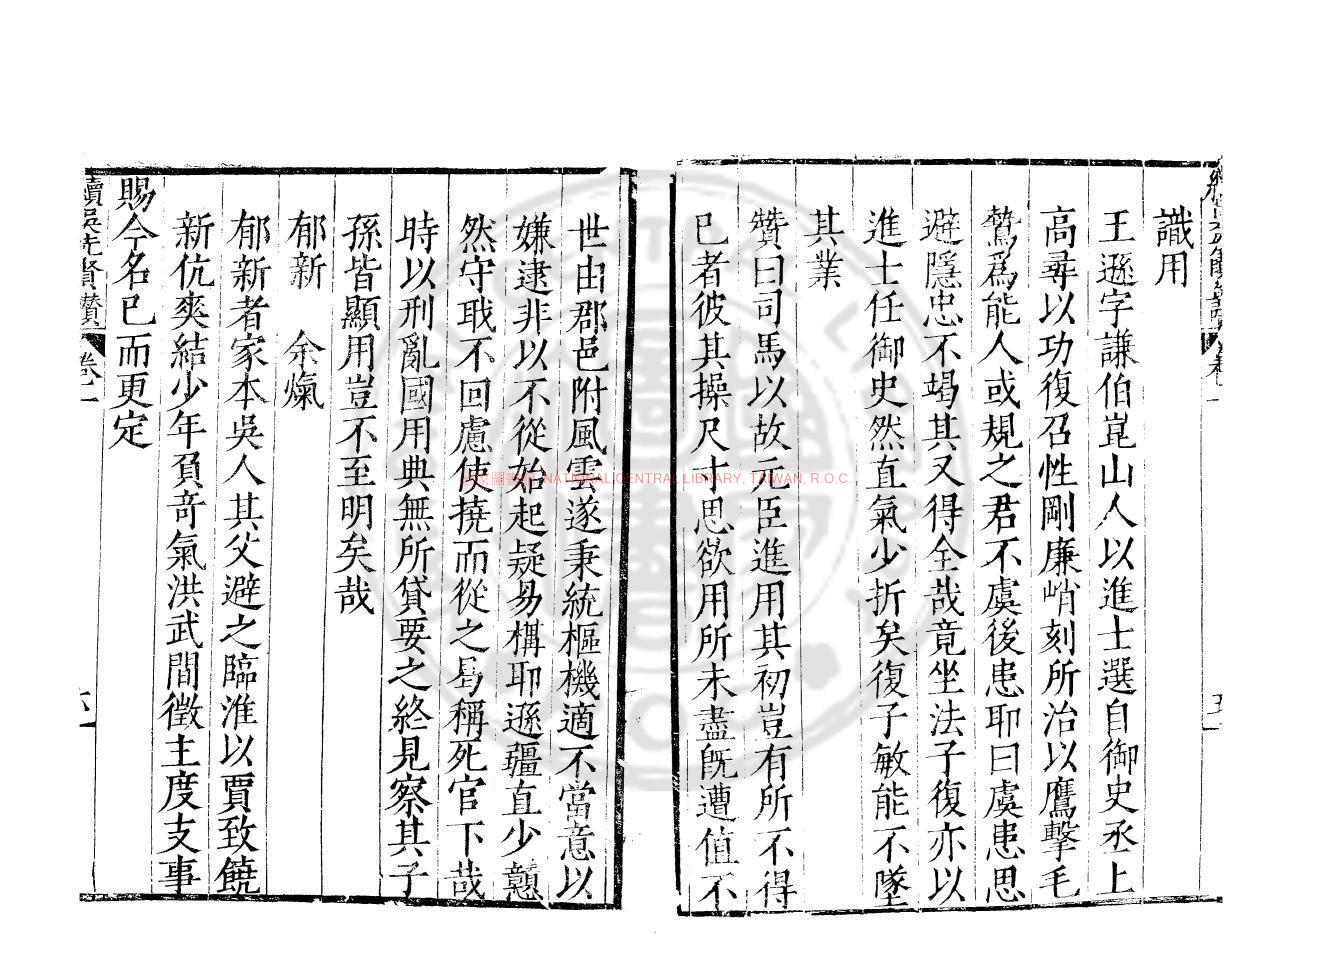 識用
王遜字謙伯崑山人以進士選自御史丞上
高尋以功復召性剛廉峭刻所治以鷹擊毛
鷙爲能人或規之君不虞後患耶曰虞患思
避隱忠不竭其又得全哉竟坐法子復亦以
進士任御史然直氣少折矣復子敏能不墜
其業
贊曰司馬以故元臣進用其初豈有所不得
已者彼其操尺寸思欲用所未盡旣遭值不
世由郡邑附風雲遂秉統樞機適不當意以
嫌逮非以不從始起疑易構耶遜疆直少戇
然守戢不回慮使撓而從之曷稱死官下哉
時以刑亂國用典無所貸要之終見察其子
孫皆顯用豈不至明矣哉
郁新 余熂
郁新者家本吳人其父避之臨淮以賈致饒
新伉爽結少年負奇氣洪武間徵主度支事
賜今名已而更定
續吳先賢讃 卷二
六
NATIONAL CENTRAL LIBRARY, TAIWAN, R.O.C.